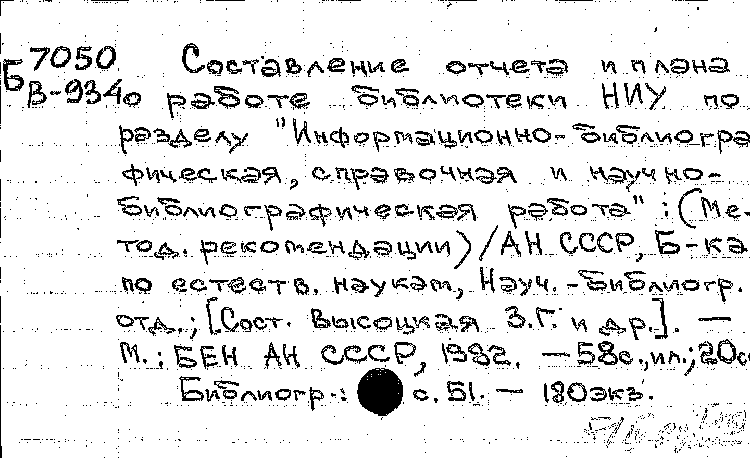 Б 7050 Составление отчета и плана
В-934 о работе библиотеки НИУ по
разделу "Информационно-библиогра
фическая, справочная и научно-
библиографическая работа" : (Ме-
тод. рекомендации) / АН СССР, Б-ка
по естеств. наукам, Науч.-библиогр.
отд.; [Сост. Высоцкая З.Г. и др.]. —
М.: БЕН АН СССР, 1982. — 58с., ил.; 20с
Библиогр.: с. 51. — 180экз.